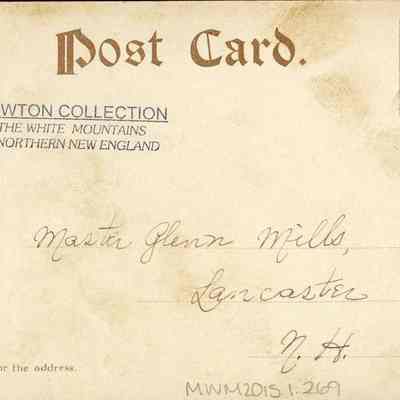 Post Card.
WTON COLLECTION
THE WHITE MOUNTAINS
NORTHERN NEW ENGLAND
Master Glenn Mills,
Lancaster
N. H.
or the address.
MWM2015.1.269